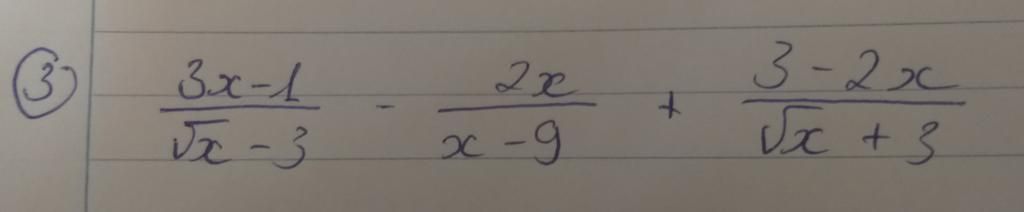 ③ (3x-1)/(√x-3) - 2x/(x-9) + (3-2x)/(√x+3)